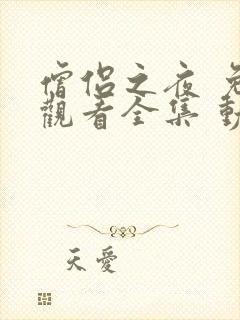 僧侶之夜 免
觀看全集 動
天愛